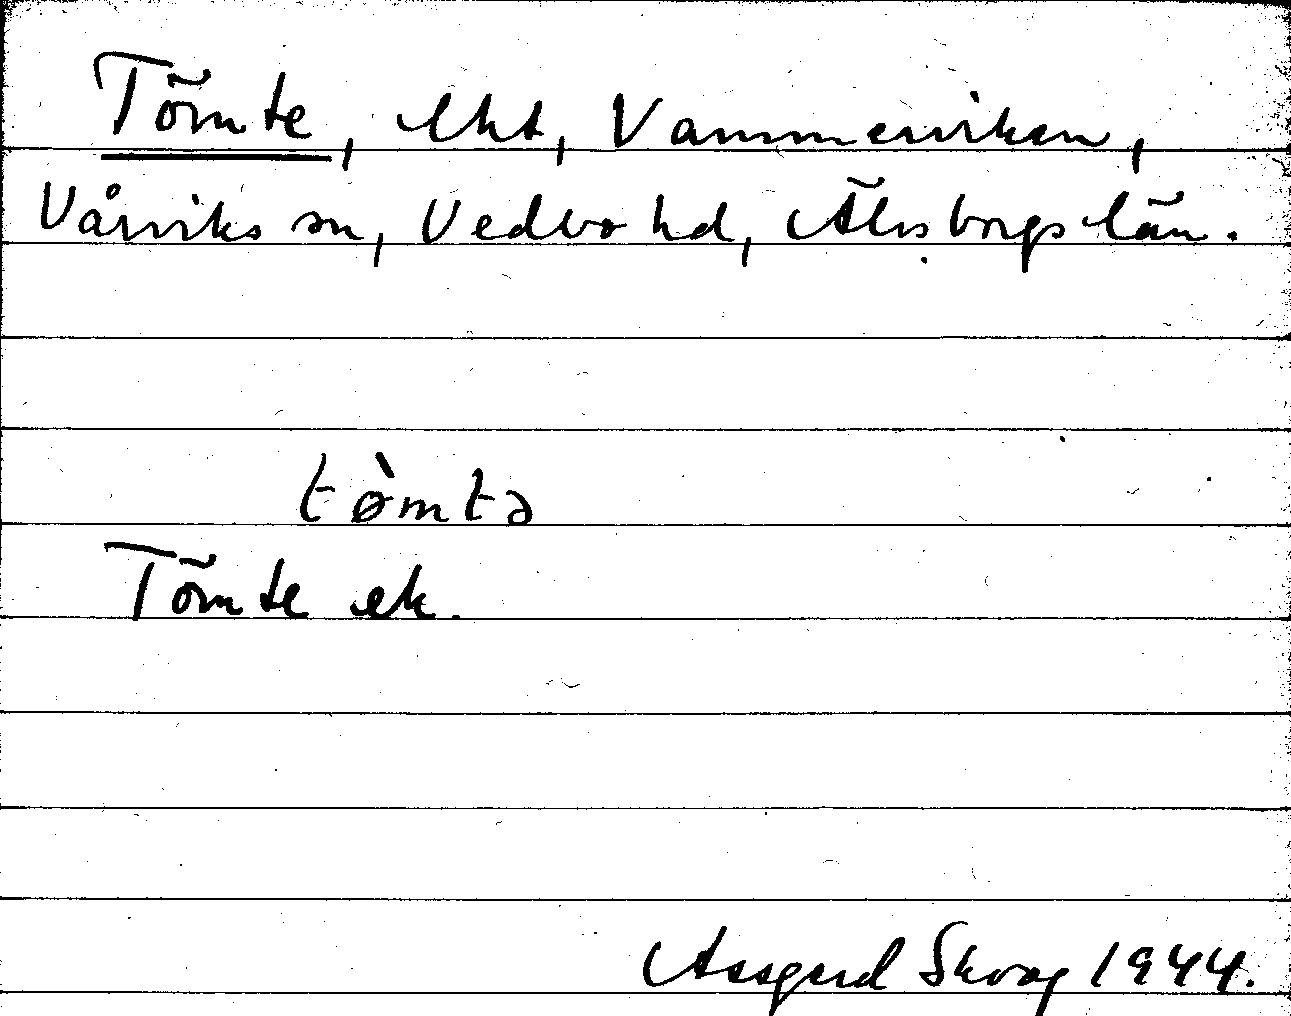 Tömte, lht, Vammerviken,
Vårviks sn, Vedbo hd, Älvsborgs län.
tømtə
Tömte ek.
Assgerd Skog 1944.